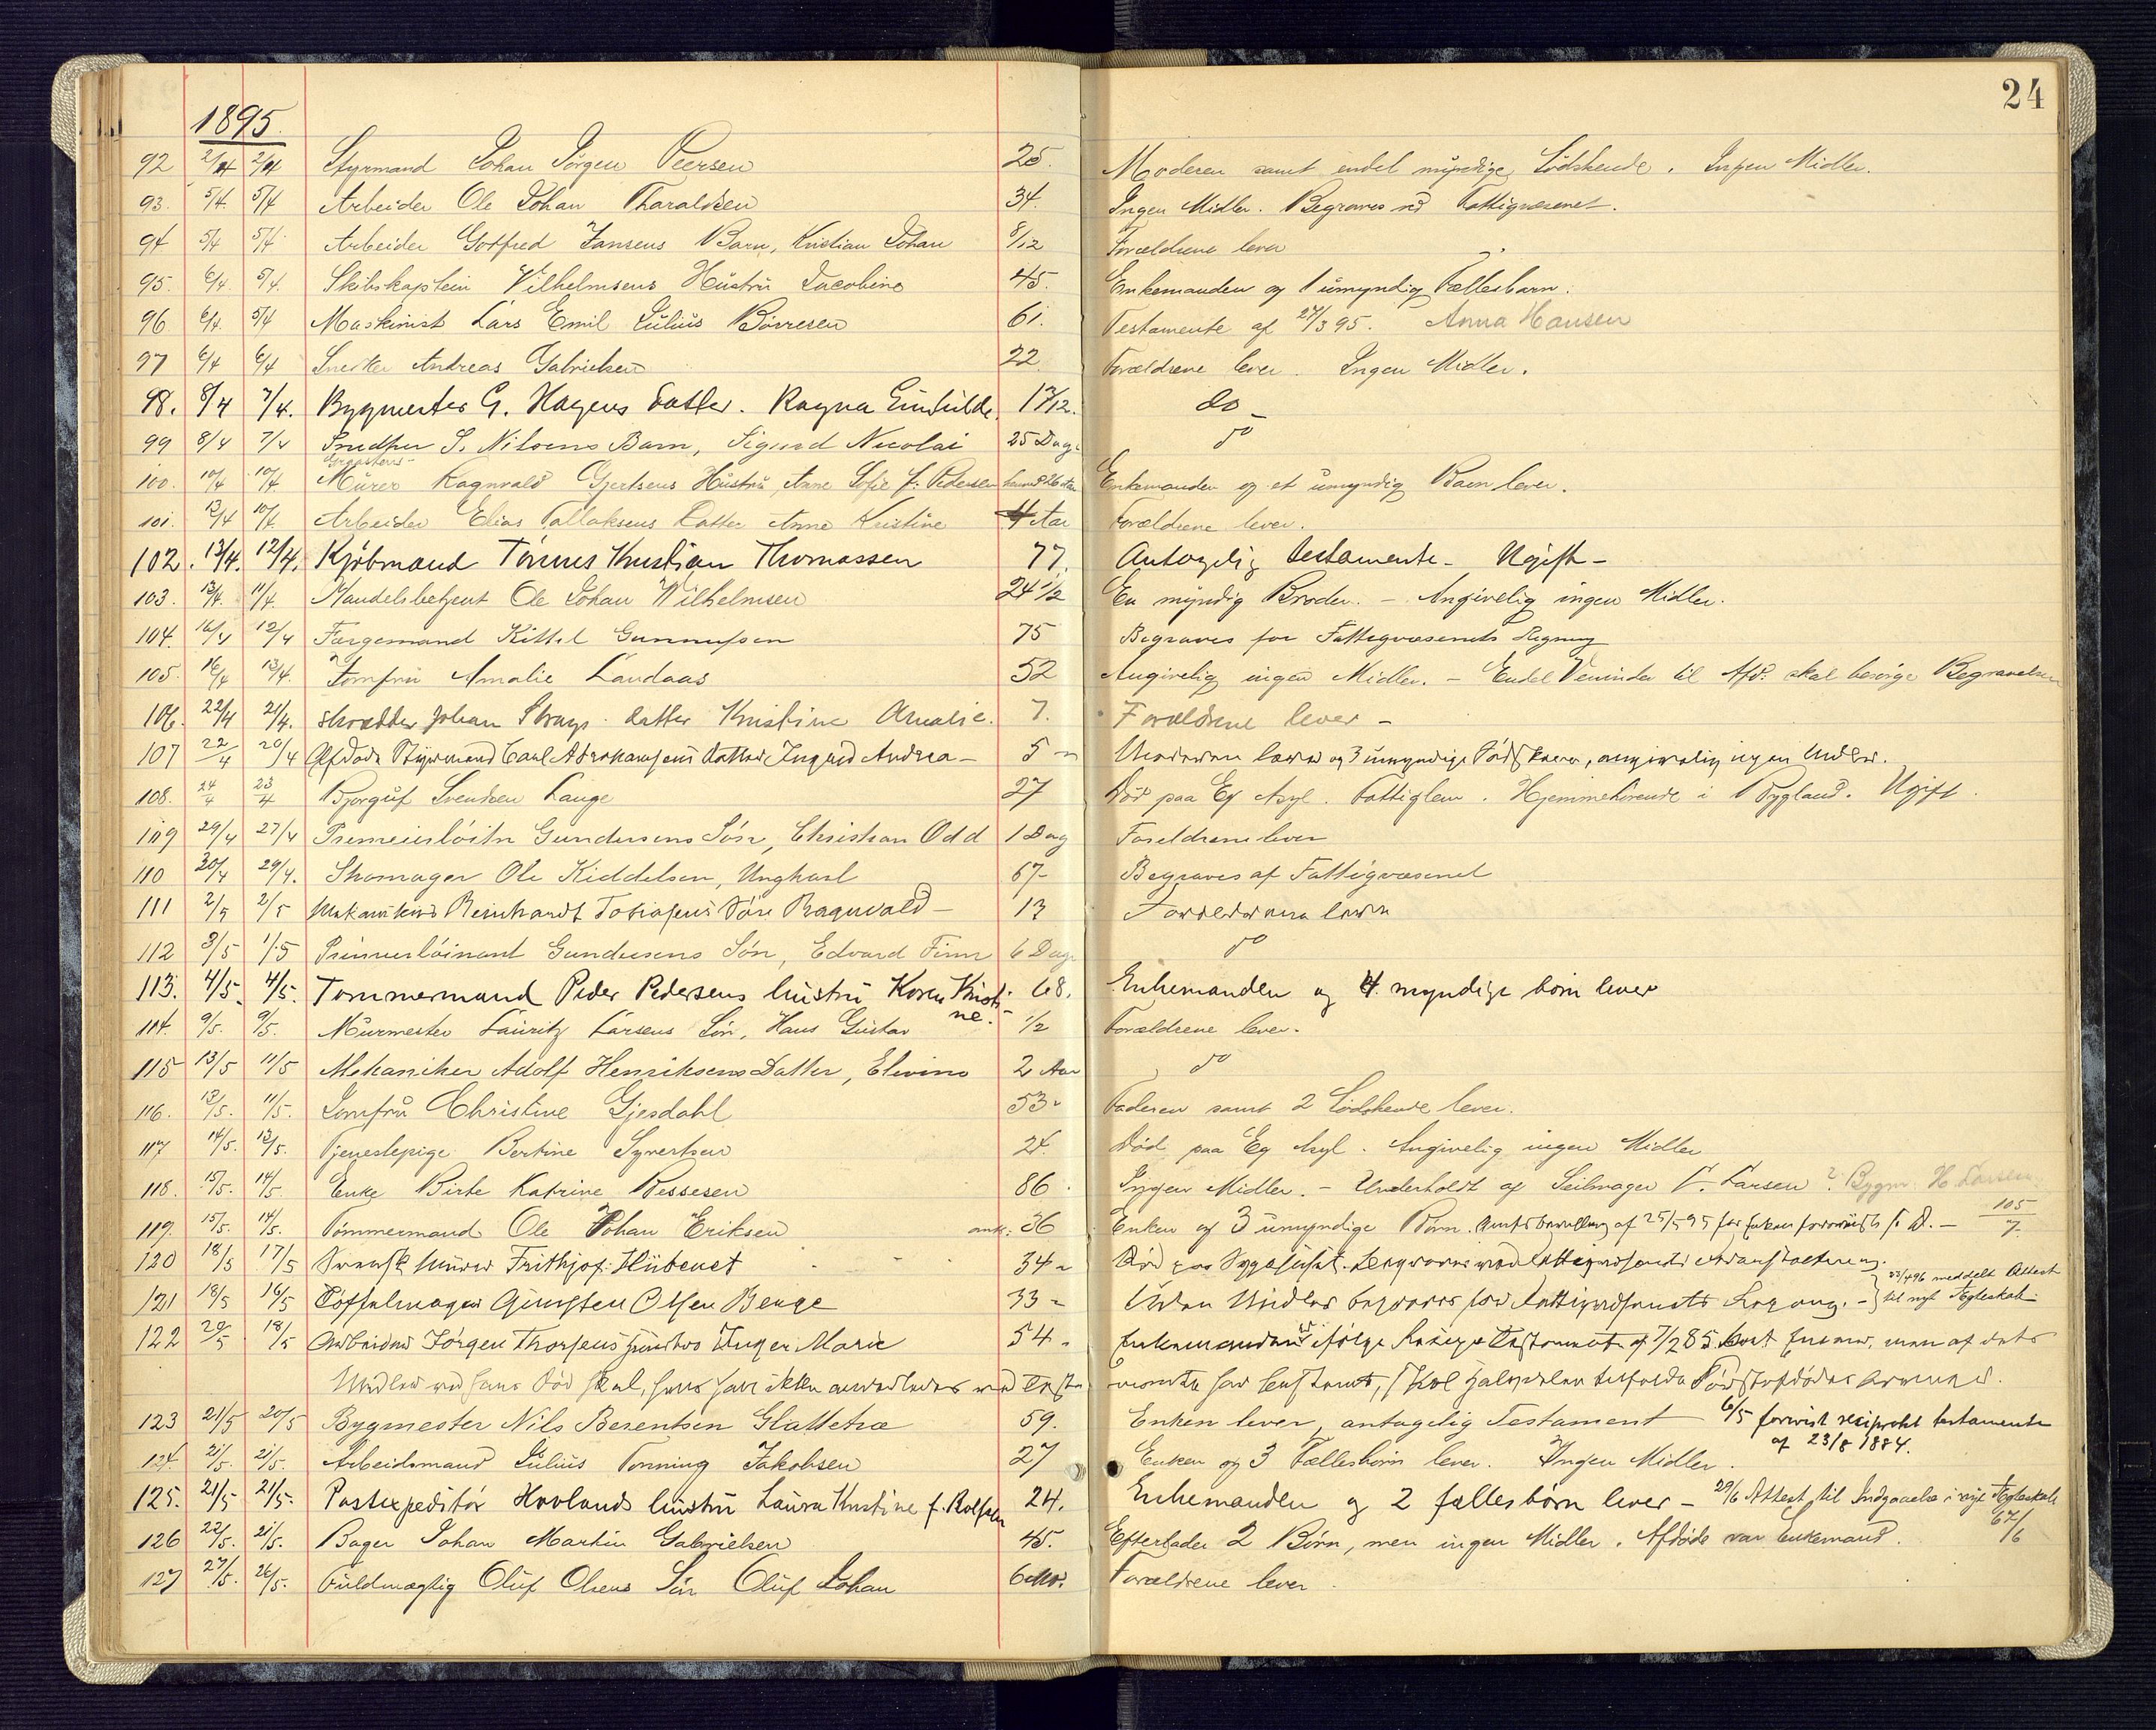 24
1895.
92 2/4 2/4 Styrmand Johan Jørgen Peersen 25. Moderen samt endel myndige Södskende. Ingen Midler.
93. 5/4. 5/4 Arbeider Ole Johan Tharaldsen 34. Ingen Midler. Begraves ved Fattigvæsenet.
94 5/4 5/4 Arbeider Gotfred Jansens Barn, Kristian Johan 8/12 Forældrene lever
95. 6/4. 5/4. Skibskaptein Vilhelmsens Hústrú Jacobine 45. Enkemanden og 1 úmyndig Fællesbarn.
96 6/4. 5/4 Maskinist Lars Emil Júliús Börresen 61. Testamente af 27/3 95. Anna Hansen
97 6/4 6/4 Snedker Andreas Gabrielsen 22. Forældrene lever. Ingen Midler.
98. 8/4 7/4. Bygmester G. Hagens Datter. Ragna 1 7/12. do
99 8/4 7/4 S. Nilsens Barn, Sigurd Nicolai 25 Dag. do
100. 10/4 10/4. Múrer Ragnvald Gjertsens Hústrú, Anne Sofie f. Pedersen 26 Aar Enkemanden og et úmyndig Barn lever.
101. 13/4 10/4. Arbeider Elias Tallaksens Datter Anne Kristine 4 Aar Forældrene lever.
102. 13/4. 12/4. Kjöbmand Tönnes Kristian Thomassen 77. Antagelig testamente - Ugift -
103. 13/4. 11/4. Handelsbetjent Ole Johan Wilhelmsen 24 1/2 En myndig Broder. - Angivelig ingen Midler.
104. 16/4 12/4 Færgemand Kittel Gunnufsen 75 Begraves for Fattigvæsenets Regning
105. 16/4 13/4. Jomfrú Amalie Landaas 52 Angivelig ingen Midler. - Endel Veninder til Afd. skal besörge Begravelsen
106. 22/4 21/4. Skrædder Johan datter Kristine Amalie. 7. Forældrene lever -
107 22/4 20/4 Afdöde Styrmand Carl Abrahamsens Datter Ingrid Andrea - 5 - Moderen lever og 3 umyndige Södskende, angivelig ingen Midler.
108. 24/4 23/4 Bjorgúf Svendsen Lauge 27 Död paa Eg Asyl. Fattiglem. Hjemmehörende i Bygland. Ugift.
109 29/4 27/4 Premierlöitn Gundersens Sön, Christian Odd 1 Dag Foreldrene lever
110 30/4 29/4. Skomager Ole Kiddelsen, Ungkarl 67- Begraves af Fattigvæsenet
111 2/5 2/5 Reinhardt Tobiasens Sön Ragnvald - 13 Forældrene lever
112 3/5 1/5 Premierlöinant Gundersens Sön, Edvard Finn 6 Dage do
113. 4/5. 4/5. Tømmermand Peder Pedersens hústrú Karen Kristine. 68. Enkemanden og 4 myndige börn lever
114. 9/5. 9/5. Múrmester Laúritz Larsens Sön, Hans Gústav 1/2 Forældrene lever.
115 13/5 11/5 Mekaniker Adolf Henriksens Datter, Elvine 2 Aar do
116. 13/5. 11/5. Jomfrú Christine Gjesdahl 53- Faderen samt 2 Södskende lever.
117 14/5. 13/5. Tjenestepige Bertine Syvertsen 24. Död paa Eg Asyl. Angivelig ingen Midler
118. 15/5. 14/5. Enke Birte Katrine Bessesen 86. Ingen Midler. - Underholdt af Seilmager V. Larsen ? Bygm. H. Larsen
119. 15/5. 14/5. Tömmermand Ole Johan Eriksen ank: 36 Enken og 3 úmyndige Börn. Amtsbevilling af 25/5 95 for Enken - 105/7.
120 18/5 17/5 Svensk Múrer Frithjof Hübenet 34- Död paa Sygehuset. Begraves ved Fattigvæsenets
121 18/5 16/5 Töffelmager Olsen Benge 33- Uden Midler begraves for Fattigvæsenets Regning. - 23/4 96 meddelt Attest til nyt Ægteskab.
122 20/5 18/5 Arbeider Jörgen Thorsens Hustru Inger Marie 54- Enkemanden ifölge Testament af 7/2 85
Midler ved hans död skal, hvis han ikke
123 21/5 20/5 Bygmester Nils Berentsen Glattetræ 59. Enken lever, antagelig Testament - 6/5 forevist reciprokt testamente af 23/8 1884.
124. 21/5. 21/5. Arbeidsmand Júliús Tönning Jakobsen 27 Enken og 3 Fællesbörn lever. Ingen Midler.
125. 21/5 21/5. Postexpeditör Hovlands hústrú Laúra Kristine f. Rolfsen 24. Enkemanden og 2 fællesbörn lever - 29/6 Attest til Indgaaelse i nyt Ægteskab
126 22/5. 21/5. Bager Johan Martin Gabrielsen 45. Efterlader 2 Börn, men ingen Midler. Afdöde var Enkemand. 67/6
127 27/5. 26/5. Fúldmægtig Olúf Olsens Sön Olúf Johan 6 Md. Forældrene lever.